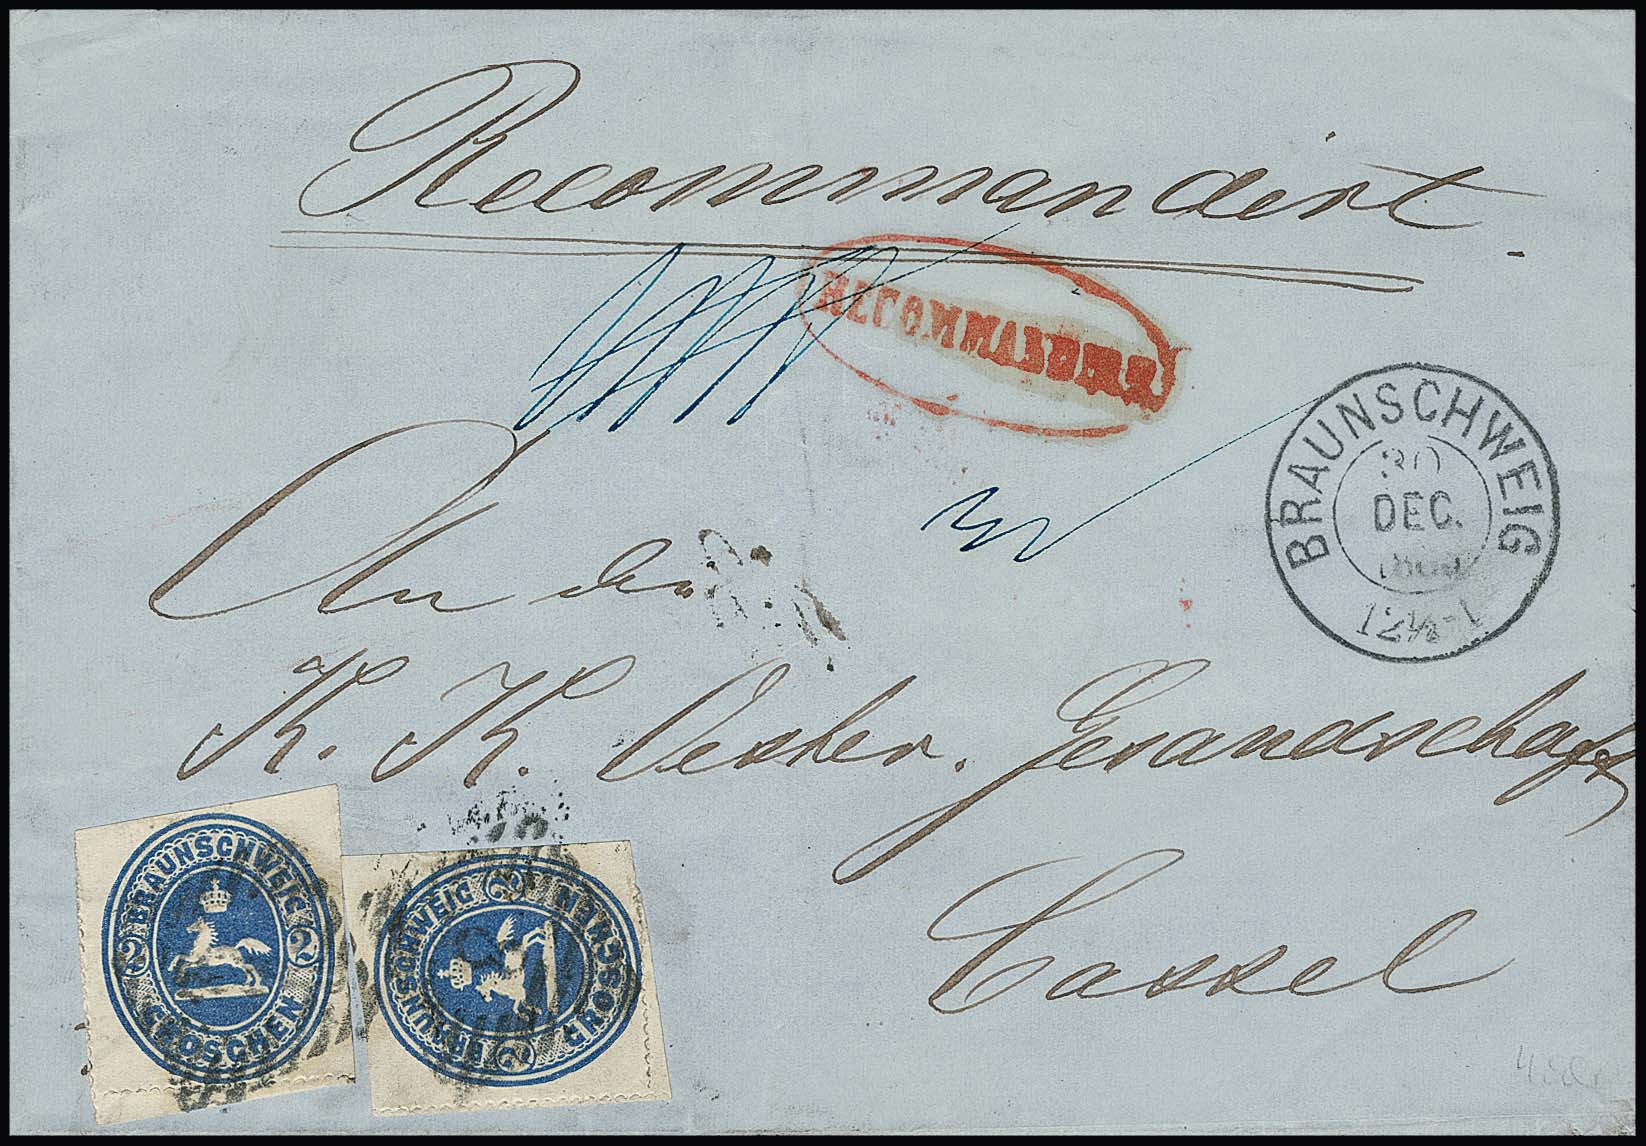 Recommandirt.
RECOMMANDIRT
BRAUNSCHWEIG
30
DEC.
12½-1
An die
K. K. Oester. Gesandschaft
Cassel
BRAUNSCHWEIG
2 2
GROSCHEN
BRAUNSCHWEIG
2 2
GROSCHEN